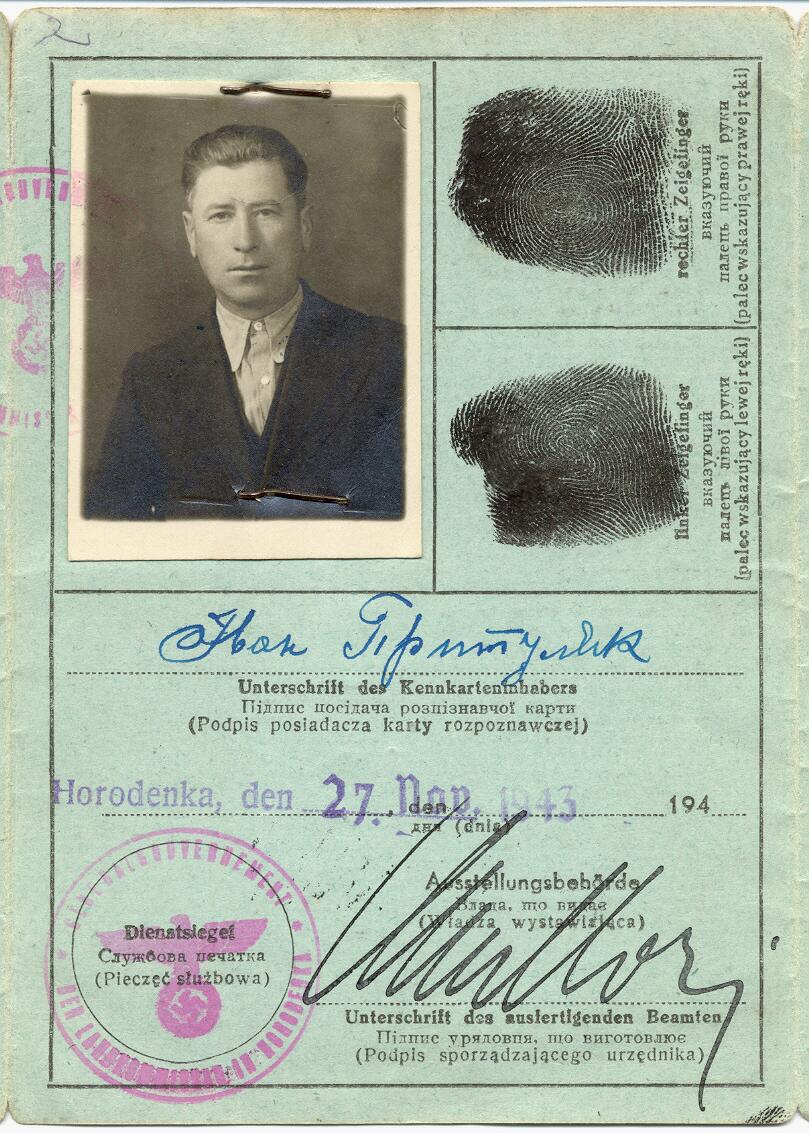 rechter Zeigefinger
вказуючий
палець правої руки
(palec wskazujący prawej ręki)
linker Zeigefinger
вказуючий
палець лівої руки
(palec wskazujący lewej ręki)
Іван Притуляк
Unterschrift des Kennkarteninhabers
Підпис посідача розпізнавчої карти
(Podpis posiadacza karty rozpoznawczej)
Horodenka, den 27. Nov. 1943
den 194
дня (dnia)
GENERALGOUVERNEMENT
DER LANDKOMMISSAR IN HORODENKA
Dienstsiegel
Службова печатка
(Pieczęć służbowa)
Ausstellungsbehörde
Влада, що видає
(Władza wystawiająca)
Unterschrift des ausfertigenden Beamten
Підпис урядовця, що виготовлює
(Podpis sporządzającego urzędnika)